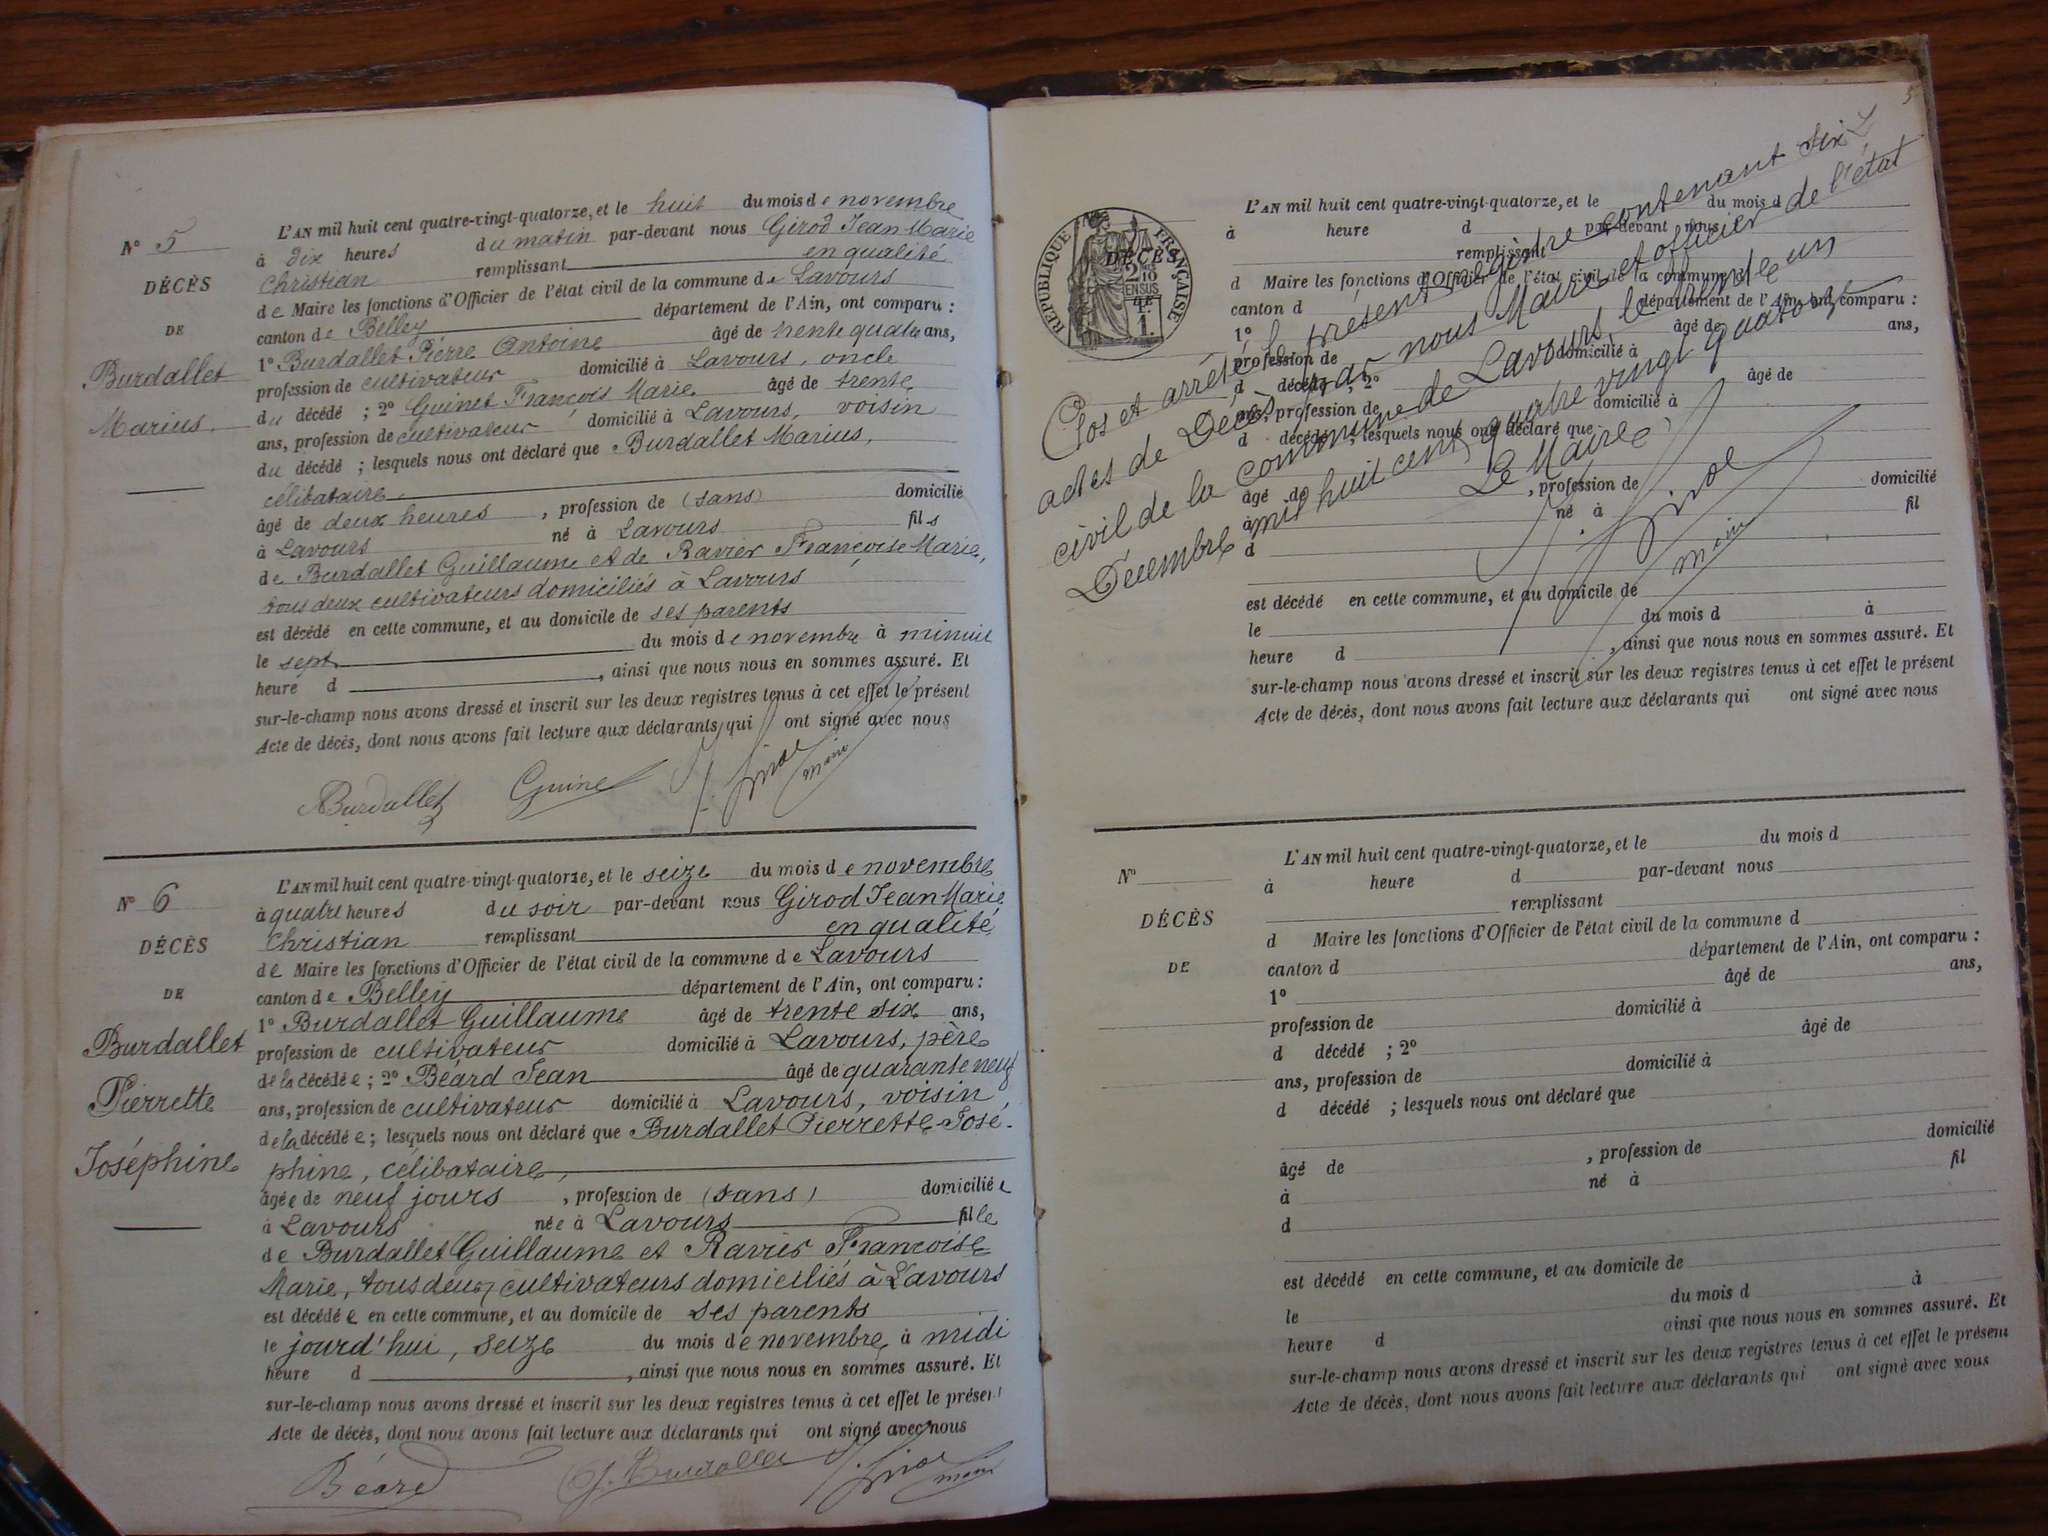 N° 5
DÉCÈS
DE
Burdallet
Marius.
L'AN mil huit cent quatre-vingt-quatorze, et le huit du mois de novembre
à dix heures du matin par-devant nous Girod Jean Marie
Christian remplissant en qualité
de Maire les fonctions d'Officier de l'état civil de la commune de Lavours
canton de Belley département de l'Ain, ont comparu :
1° Burdallet Pierre Antoine âgé de trente quatre ans,
profession de cultivateur domicilié à Lavours, oncle
du décédé ; 2° Guinet François Marie âgé de trente
ans, profession de cultivateur domicilié à Lavours, voisin
du décédé ; lesquels nous ont déclaré que Burdallet Marius,
célibataire,
âgé de deux heures , profession de (sans) domicilié
à Lavours né à Lavours fils
de Burdallet Guillaume et de Ravier Françoise Marie,
tous deux cultivateurs domiciliés à Lavours
est décédé en cette commune, et au domicile de ses parents
le sept du mois de novembre à minuit
heure d , ainsi que nous nous en sommes assuré. Et
sur-le-champ nous avons dressé et inscrit sur les deux registres tenus à cet effet le présent
Acte de décès, dont nous avons fait lecture aux déclarants qui ont signé avec nous
Burdallet Guinet J. Girod maire
N° 6
DÉCÈS
DE
Burdallet
Pierrette
Joséphine
L'AN mil huit cent quatre-vingt-quatorze, et le seize du mois de novembre
à quatre heures du soir par-devant nous Girod Jean Marie
Christian remplissant en qualité
de Maire les fonctions d'Officier de l'état civil de la commune de Lavours
canton de Belley département de l'Ain, ont comparu :
1° Burdallet Guillaume âgé de trente six ans,
profession de cultivateur domicilié à Lavours, père
de la décédée ; 2° Béard Jean âgé de quarante neuf
ans, profession de cultivateur domicilié à Lavours, voisin
de la décédée ; lesquels nous ont déclaré que Burdallet Pierrette José-
phine, célibataire,
âgée de neuf jours , profession de (sans) domiciliée
à Lavours née à Lavours fille
de Burdallet Guillaume et Ravier Françoise
Marie, tous deux cultivateurs domiciliés à Lavours
est décédée en cette commune, et au domicile de ses parents
le jourd'hui, seize du mois de novembre à midi
heure d , ainsi que nous nous en sommes assuré. Et
sur-le-champ nous avons dressé et inscrit sur les deux registres tenus à cet effet le présent
Acte de décès, dont nous avons fait lecture aux déclarants qui ont signé avec nous
Béard G. Burdallet J. Girod maire
5
RÉPUBLIQUE FRANÇAISE
DÉCÈS
L'AN mil huit cent quatre-vingt-quatorze, et le du mois d
à heure d par-devant nous
remplissant
d Maire les fonctions d'Officier de l'état civil de la commune d
canton d département de l'Ain, ont comparu :
1° âgé de ans,
profession de domicilié à
d décédé ; 2° âgé de
ans, profession de domicilié à
d décédé ; lesquels nous ont déclaré que
âgé de , profession de domicilié
à né à fil
d
est décédé en cette commune, et au domicile de
le du mois d à
heure d , ainsi que nous nous en sommes assuré. Et
sur-le-champ nous avons dressé et inscrit sur les deux registres tenus à cet effet le présent
Acte de décès, dont nous avons fait lecture aux déclarants qui ont signé avec nous
Clos et arrêté le présent registre contenant six
actes de Décès par nous Maire et officier de l'état
civil de la commune de Lavours, le trente un
Décembre mil huit cent quatre vingt quatorze
Le Maire
J. Girod
maire
N°
DÉCÈS
DE
L'AN mil huit cent quatre-vingt-quatorze, et le du mois d
à heure d par-devant nous
remplissant
d Maire les fonctions d'Officier de l'état civil de la commune d
canton d département de l'Ain, ont comparu :
1° âgé de ans,
profession de domicilié à
d décédé ; 2° âgé de
ans, profession de domicilié à
d décédé ; lesquels nous ont déclaré que
âgé de , profession de domicilié
à né à fil
d
est décédé en cette commune, et au domicile de
le du mois d à
heure d ainsi que nous nous en sommes assuré. Et
sur-le-champ nous avons dressé et inscrit sur les deux registres tenus à cet effet le présent
Acte de décès, dont nous avons fait lecture aux déclarants qui ont signé avec nous